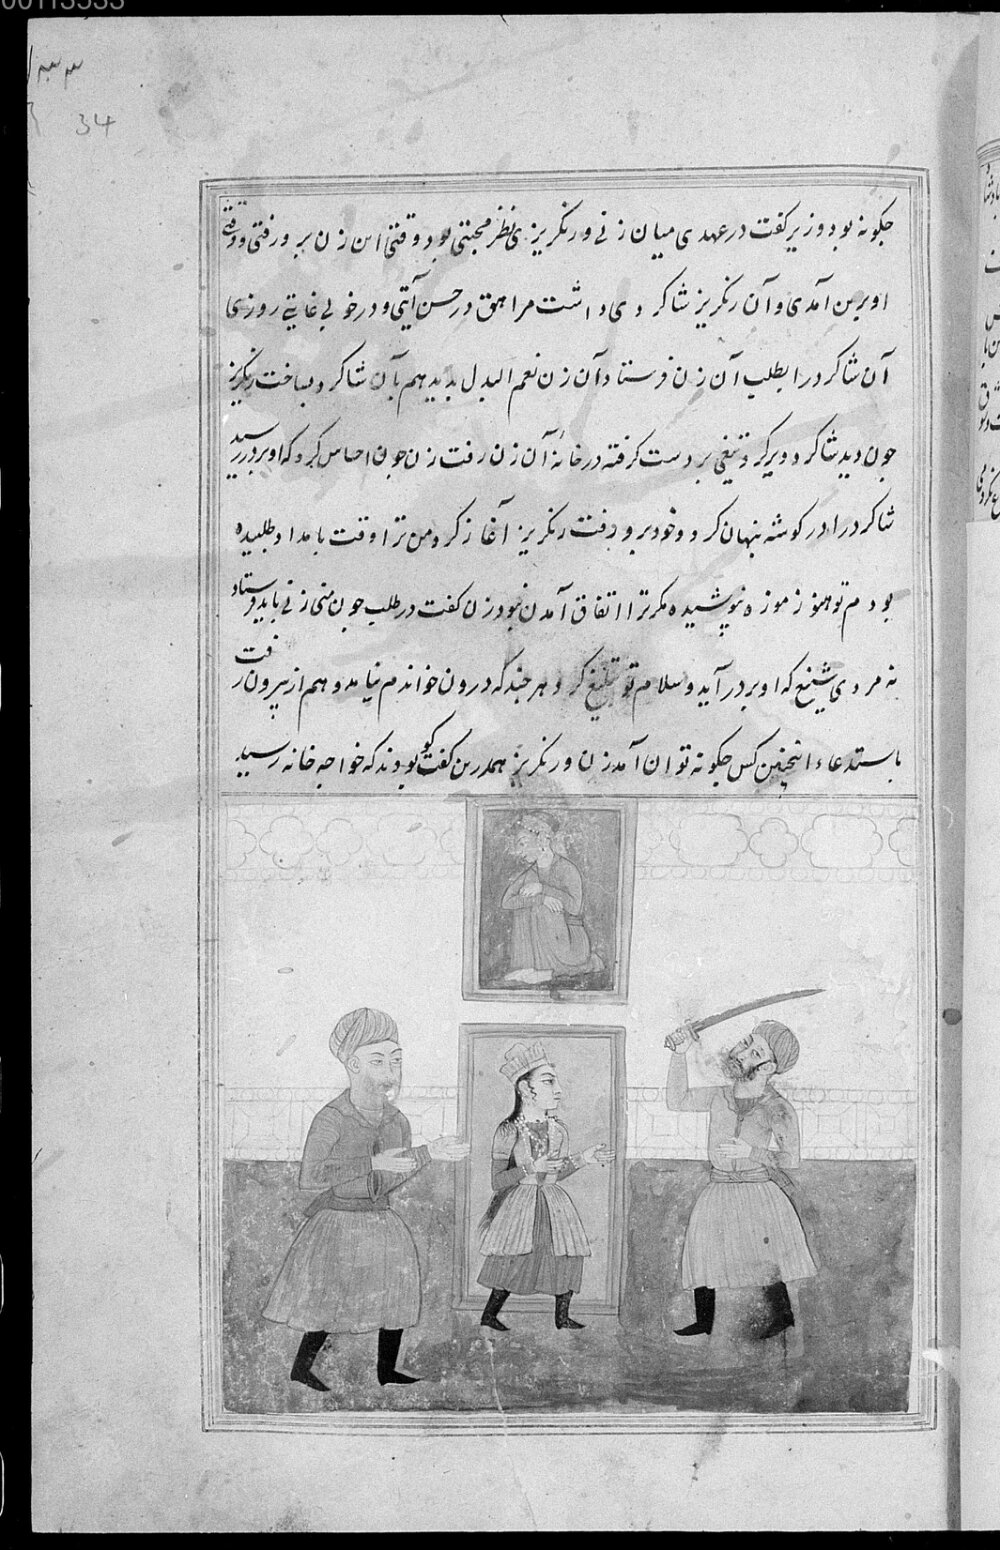 00113533
۳۳
34
جکونه بود وزیر کفت در عهدی میان زنی و رنکریزی نظر محبتی بود وقتی این زن بر و رفتی و وقتی
او برین آمدی و آن رنکریز شاکردی داشت مراهق در حسن آیتی و در خوبی غایتی روزی
آن شاکرد را بطلب آن زن فرستاد آن زن نعم البدل بدید هم بآن شاکرد بساخت رنکریز
جون دید شاکرد دیر کرد تیغی بر دست کرفته در خانه آن زن رفت زن جون احساس کرد که او بر در رسید
شاکرد را در کوشه پنهان کرد و خود بر و رفت رنکریز آغاز کرد من ترا وقت بامداد طلبیده
بودم تو هنوز موزه نپوشیده مکر ترا اتفاق آمدن نبود زن کفت در طلب جون منی زنی باید فرستاد
نه مردی شنیع که او بر در آید و سلام تو تبلیغ کرد هر جند که درون خواندم نیامد و هم از بیرون رفت
باستدعاء اینجنین کس جکونه توان آمد زن و رنکریز همدرین کفت و کو بودند که خواجه خانه رسید